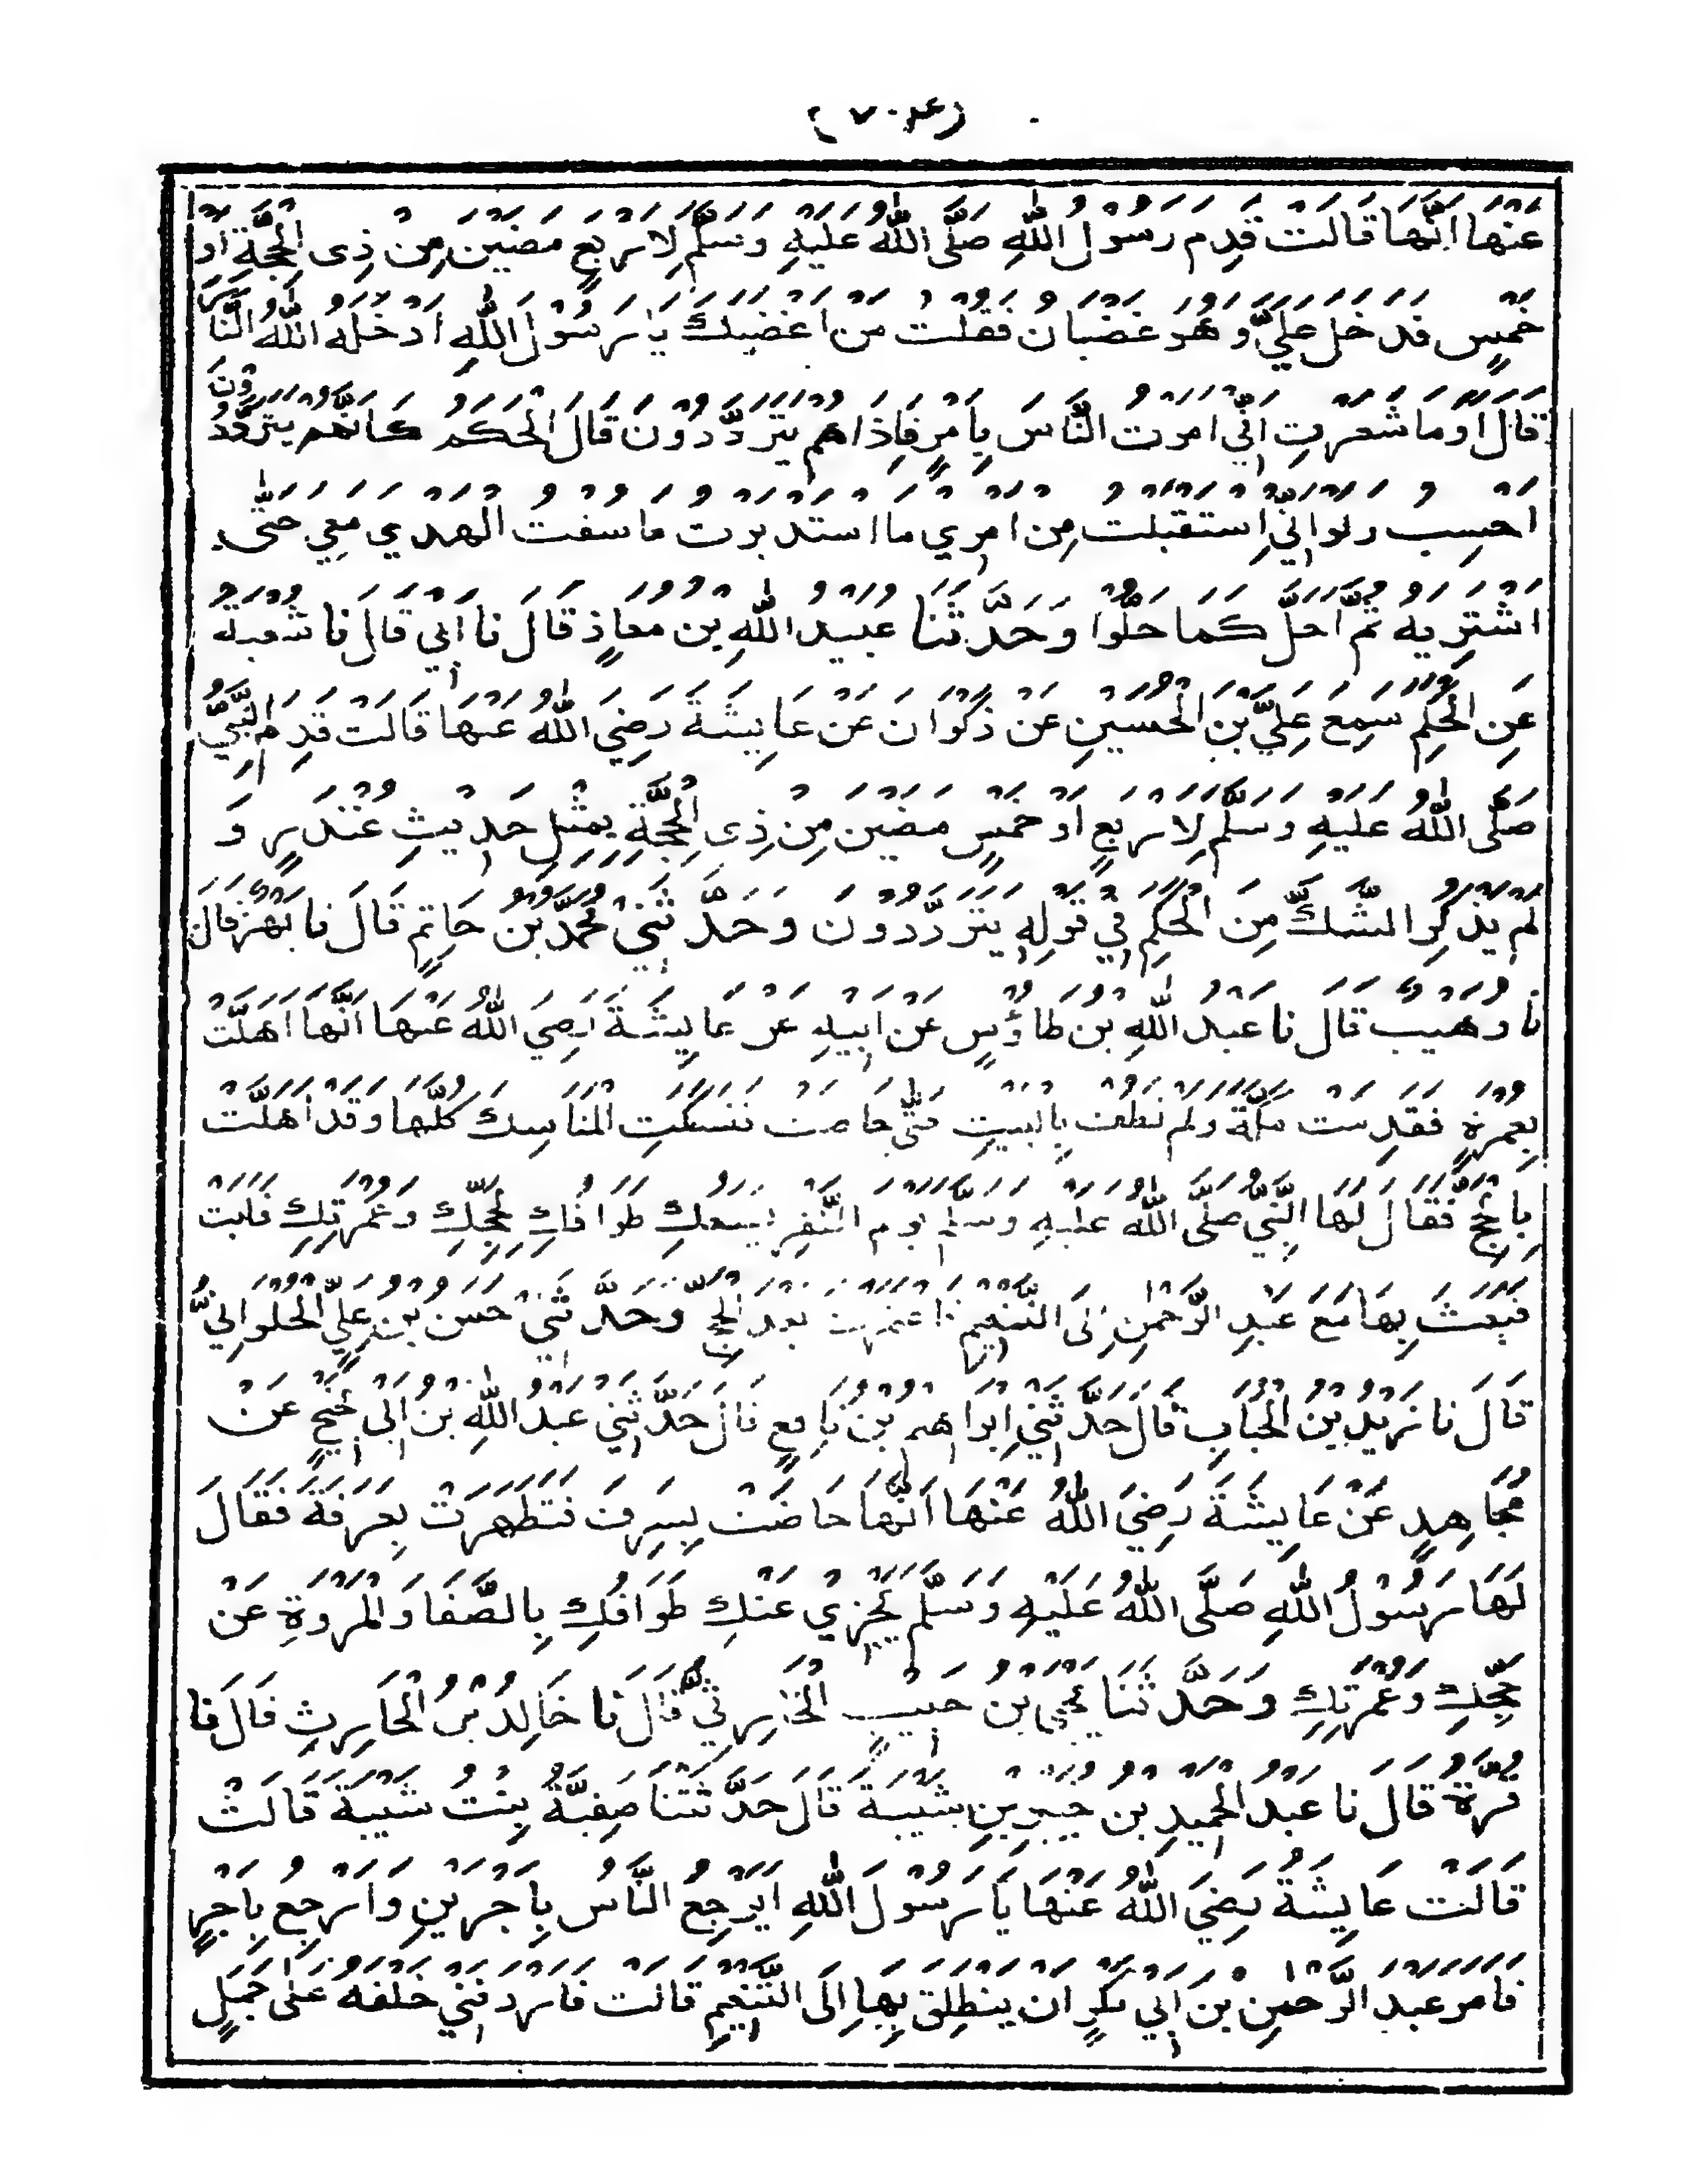 (۷۰۴)
عَنْهَا اَنَّهَا قَالَتْ قَدِمَ رَسُوْلُ اللّٰهِ صَلَّى اللّٰهُ عَلَيْهِ وَسَلَّمَ لِاَرْبَعٍ مَضَيْنَ مِنْ ذِى الْحِجَّةِ اَوْ
خَمْسٍ فَدَخَلَ عَلَيَّ وَهُوَ غَضْبَانُ فَقُلْتُ مَنْ اَغْضَبَكَ يَا رَسُوْلَ اللّٰهِ اَدْخَلَهُ اللّٰهُ النَّارَ
قَالَ اَوَمَا شَعَرْتِ اَنِّي اَمَرْتُ النَّاسَ بِاَمْرٍ فَاِذَا هُمْ يَتَرَدَّدُوْنَ قَالَ الْحَكَمُ كَاَنَّهُمْ يَتَرَدَّدُوْنَ
اَحْسِبُ وَلَوْ اَنِّي اِسْتَقْبَلْتُ مِنْ اَمْرِي مَا اسْتَدْبَرْتُ مَا سُقْتُ الْهَدْيَ مَعِيَ حَتّٰى
اَشْتَرِيَهُ ثُمَّ اَحِلَّ كَمَا حَلُّوْا وَحَدَّثَنَا عُبَيْدُ اللّٰهِ بْنُ مُعَاذٍ قَالَ نَا اَبِي قَالَ نَا شُعْبَةُ
عَنِ الْحَكَمِ سَمِعَ عَلِيَّ بْنَ الْحُسَيْنِ عَنْ ذَكْوَانَ عَنْ عَايِشَةَ رَضِيَ اللّٰهُ عَنْهَا قَالَتْ قَدِمَ النَّبِيُّ
صَلَّى اللّٰهُ عَلَيْهِ وَسَلَّمَ لِاَرْبَعٍ اَوْ خَمْسٍ مَضَيْنَ مِنْ ذِى الْحِجَّةِ بِمِثْلِ حَدِيْثِ غُنْدَرٍ وَ
لَمْ يَذْكُرِ الشَّكَّ مِنَ الْحَكَمِ فِي قَوْلِهِ يَتَرَدَّدُوْنَ وَحَدَّثَنِيْ مُحَمَّدُ بْنُ حَاتِمٍ قَالَ نَا بَهْزٌ قَالَ
نَا وُهَيْبٌ قَالَ نَا عَبْدُ اللّٰهِ بْنُ طَاؤُسٍ عَنْ اَبِيْهِ عَنْ عَايِشَةَ رَضِيَ اللّٰهُ عَنْهَا اَنَّهَا اَهَلَّتْ
بِعُمْرَةٍ فَقَدِمَتْ مَكَّةَ وَلَمْ تَطُفْ بِالْبَيْتِ حَتّٰى حَاضَتْ فَنَسَكَتِ الْمَنَاسِكَ كُلَّهَا وَقَدْ اَهَلَّتْ
بِالْحَجِّ فَقَالَ لَهَا النَّبِيُّ صَلَّى اللّٰهُ عَلَيْهِ وَسَلَّمَ يَوْمَ النَّفْرِ يَسَعُكِ طَوَافُكِ لِحَجِّكِ وَعُمْرَتِكِ فَاَبَتْ
فَبَعَثَ بِهَا مَعَ عَبْدِ الرَّحْمٰنِ اِلَى التَّنْعِيْمِ فَاعْتَمَرَتْ بَعْدَ الْحَجِّ وَحَدَّثَنِيْ حَسَنُ بْنُ عَلِيٍّ الْحُلْوَانِيُّ
قَالَ نَا زَيْدُ بْنُ الْحُبَابِ قَالَ حَدَّثَنِي اِبْرَاهِيْمُ بْنُ نَافِعٍ قَالَ حَدَّثَنِي عَبْدُ اللّٰهِ بْنُ اَبِى نَجِيْحٍ عَنْ
مُجَاهِدٍ عَنْ عَايِشَةَ رَضِيَ اللّٰهُ عَنْهَا اَنَّهَا حَاضَتْ بِسَرِفَ فَتَطَهَّرَتْ بِعَرَفَةَ فَقَالَ
لَهَا رَسُوْلُ اللّٰهِ صَلَّى اللّٰهُ عَلَيْهِ وَسَلَّمَ يُجْزِيُ عَنْكِ طَوَافُكِ بِالصَّفَا وَالْمَرْوَةِ عَنْ
حَجِّكِ وَعُمْرَتِكِ وَحَدَّثَنَا يَحْيَى بْنُ حَبِيْبٍ الْحَارِثِيُّ قَالَ نَا خَالِدُ بْنُ الْحَارِثِ قَالَ نَا
قُرَّةُ قَالَ نَا عَبْدُ الْحَمِيْدِ بْنُ جُبَيْرِ بْنِ شَيْبَةَ قَالَ حَدَّثَتْنَا صَفِيَّةُ بِنْتُ شَيْبَةَ قَالَتْ
قَالَتْ عَايِشَةُ رَضِيَ اللّٰهُ عَنْهَا يَا رَسُوْلَ اللّٰهِ اَيَرْجِعُ النَّاسُ بِاَجْرَيْنِ وَاَرْجِعُ بِاَجْرٍ
فَاَمَرَ عَبْدَ الرَّحْمٰنِ بْنَ اَبِي بَكْرٍ اَنْ يَنْطَلِقَ بِهَا اِلَى التَّنْعِيْمِ قَالَتْ فَاَرْدَفَنِيْ خَلْفَهُ عَلٰى جَمَلٍ